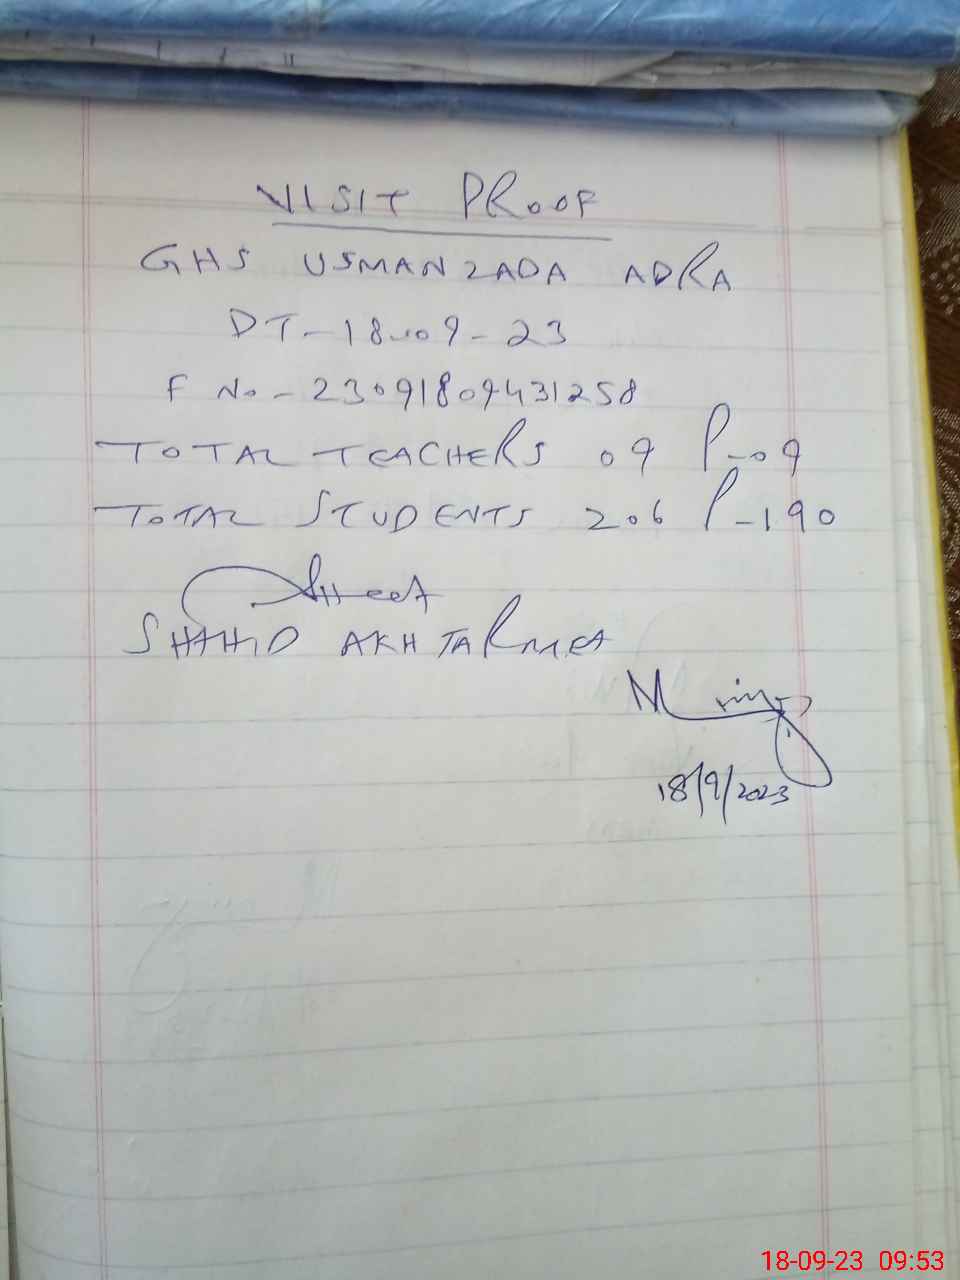 VISIT PROOF
GHS USMANZADA ADRA
DT-18-09-23
F No-23091809431258
TOTAL TEACHERS 09 P-09
TOTAL STUDENTS 206 P-190
SHAHID AKHTAR MEA
18/9/2023
18-09-23 09:53